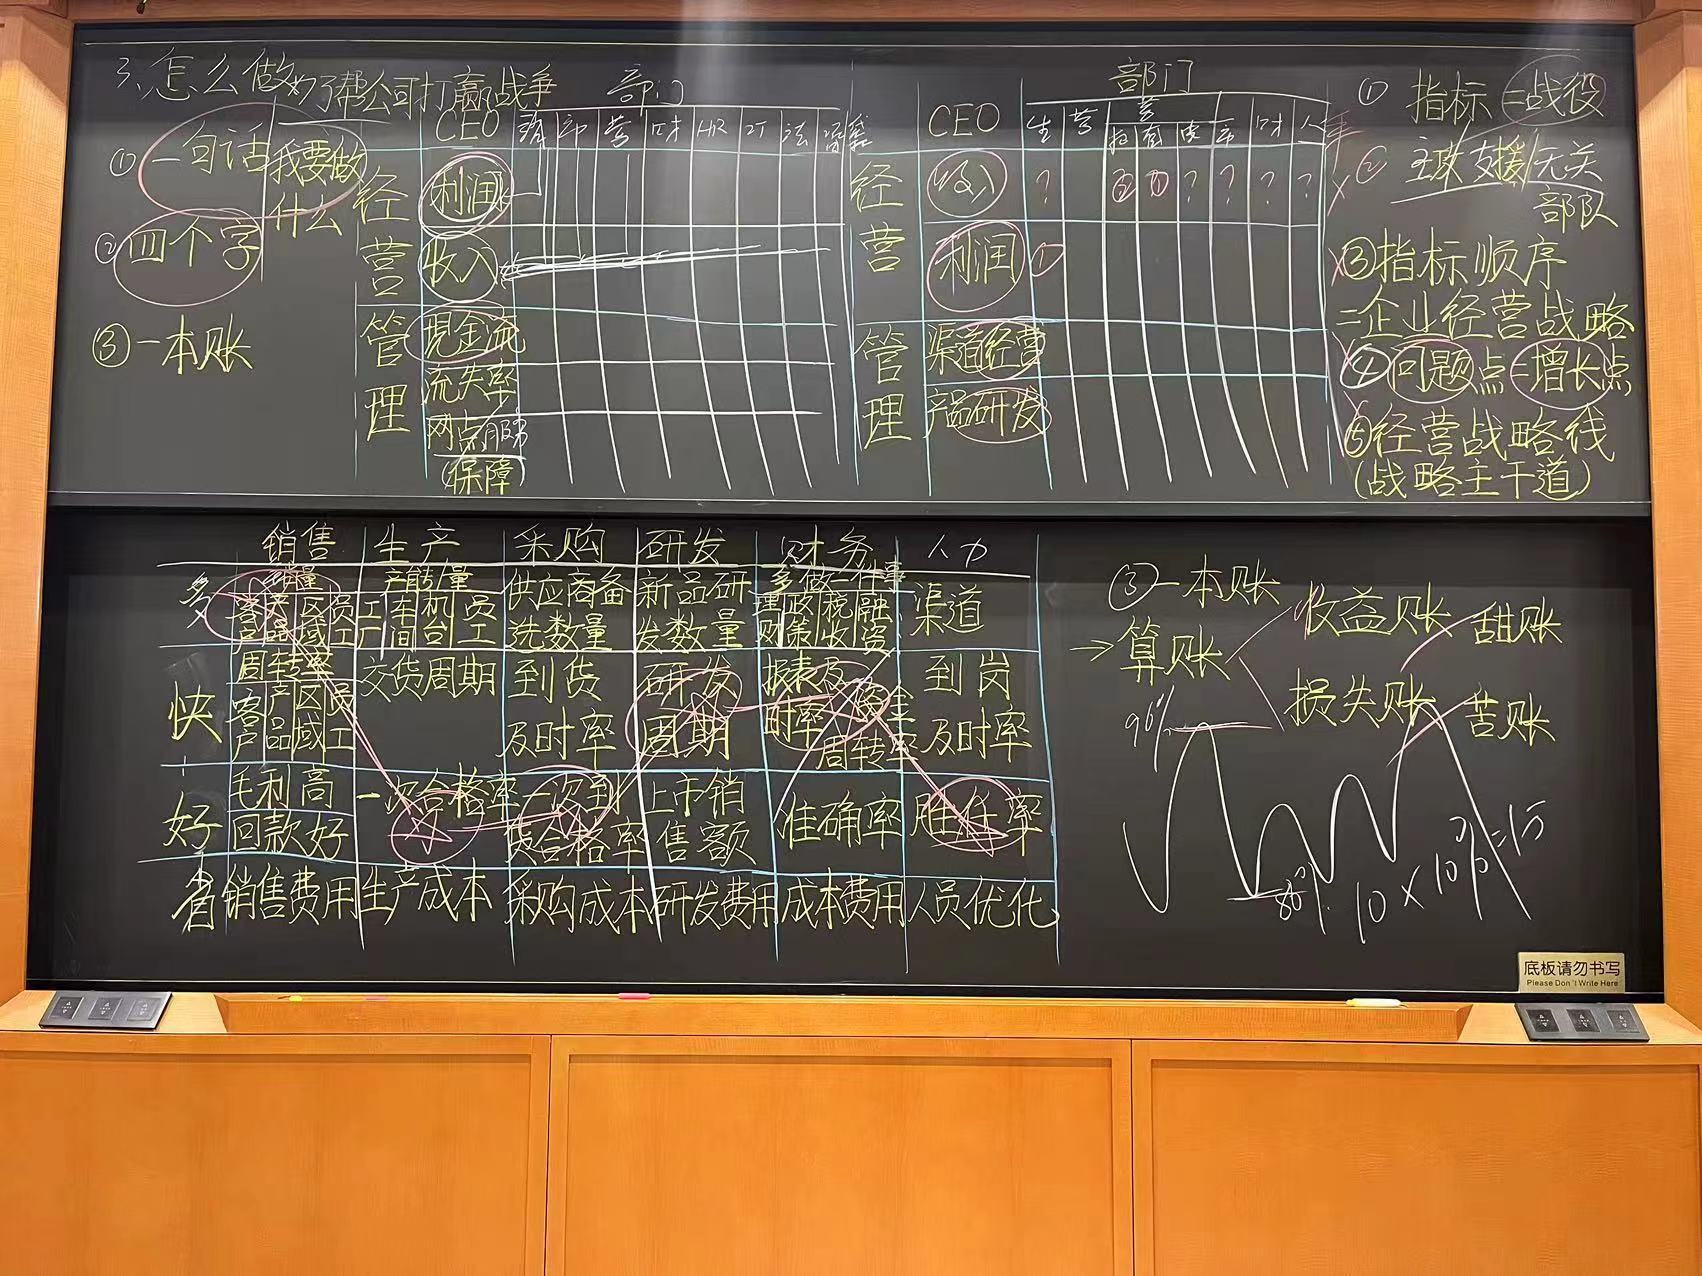 3、怎么做 为了帮公司打赢战争
①一句话 我要做什么
②四个字
③一本账
部门
CEO 营 财 HR IT 法
经营
利润
收入
管理
现金流
流失率
网点服务
(保障)
部门
CEO 生 营 财 人
经营
收入 ? ② ① ? ? ? ?
利润 ①
管理
渠道经营
产品研发
① 指标=战役
② 主攻/支援/无关
部队
③指标顺序
=企业经营战略
④问题点=增长点
⑤经营战略线
(战略主干道)
销售 生产 采购 研发 财务 人力
多
销量
客户 产品 区域 员工
产能/量
工厂 车间 机台 员工
供应商备选数量
新品研发数量
多做一件事
理财 政策 税收 融资
渠道
快
周转率
客户 产品 区域 员工
交货周期
到货及时率
研发周期
报表及时率
资金周转率
到岗及时率
好
毛利高
回款好
一次合格率
一次到货合格率
上市销售额
准确率
胜任率
省 销售费用 生产成本 采购成本 研发费用 成本费用 人员优化
③一本账
→算账
收益账 甜账
损失账 苦账
90%
80%
10×10%=1万
底板请勿书写
Please Don't Write Here